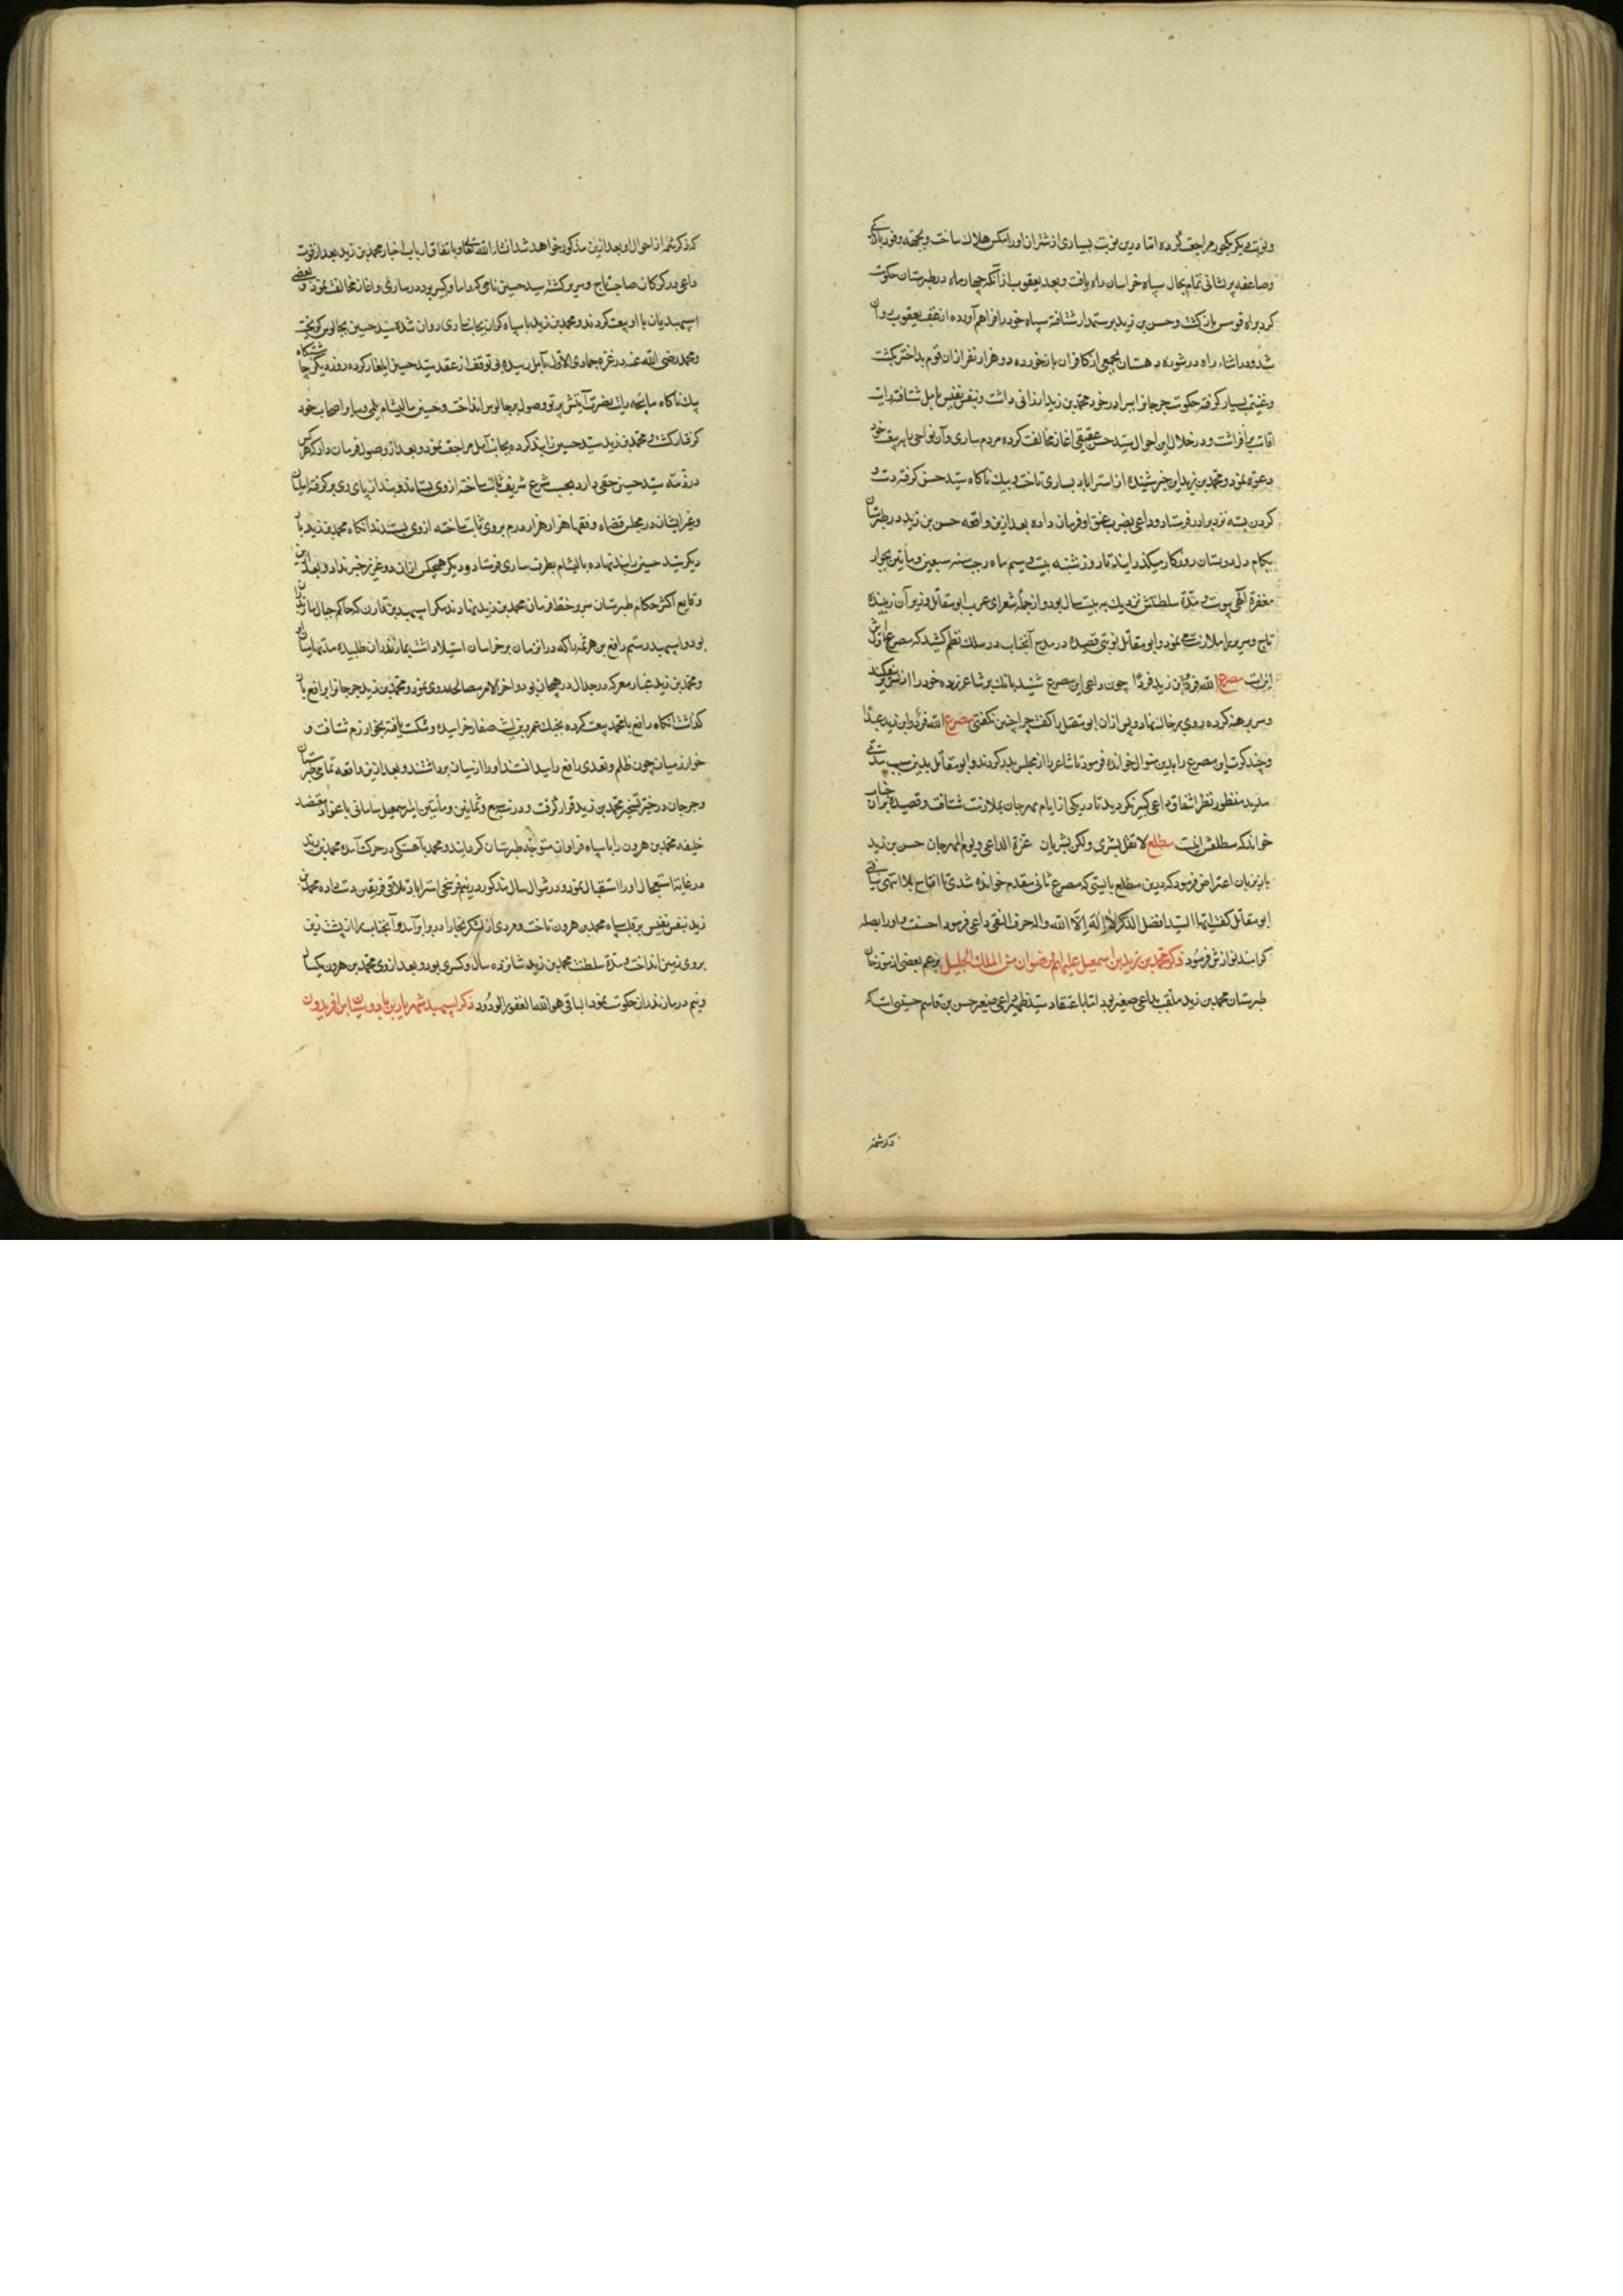 ونوبت دیکر بکجور مراجعت کرده اما درین نوبت بسیاری از شتران او را مکس هلاک ساخت و بجهة وفور بارندکی
وصاعقه پریشانی تمام بحال سپاه خراسان راه یافت و بعد یعقوب از آنکه چهار ماه در طبرستان حکومت
کرد براه قومس بازکشت و حسن بن زید برستمدار شتافته سپاه خود را فراهم آورده از عقب یعقوب روان
شد و در اثناء راه در شوره دهستان بجمعی از کافران بازخورده دو هزار نفر از ان قوم بداختر بکشت
وغنیمت بسیار کرفته حکومت جرجانرا ببرادر خود محمد بن زید ارزانی داشت و بنفس نفیس بامل شتافته رایت
اقامت برافراشت و در خلال این احوال سید حسن عقیقی اغاز مخالفت کرده مردم ساری و آن نواحی را ببیعت خود
دعوت نمود و محمد بن زید این خبر شنیده از استراباد بساری تاخت و بیک ناکاه سید حسن کرفته دست و
کردن بسته نزد برادر فرستاد و داعی بضرب عنق او فرمان داده بعد ازین واقعه حسن بن زید در طبرستان
بکام دل دوستان روزکار میکذرانید تا روز شنبه بیست و سیم ماه رجب سنه سبعین و مأتین بجوار
مغفرة الهی پیوست و مدة سلطنتش نزدیک به بیست سال بود و از جملۀ شعرای عرب ابو مقاتل ونیر آن زیبنده
تاج وسریر را ملازمت می نمود و ابو مقاتل نوبتی قصیده در مدح آنجناب در سلک نظم کشید که مصرع اولش
اینست مصرع الله فردٌ ابن زید فردٌ چون داعی این مصرع شنید بانک بر شاعر زده خود را از سریر بیفکند
وسر برهنه کرده روی بر خاک نهاد و پس ازان ابو مقتل را کفت چرا چنین نکفتی مصرع الله فردٌ وابن زید عبدٌ
وچند کرت این مصرع را بدین منوال خوانده فرمود تا شاعر را از مجلس بدر کردند و ابو مقاتل بدین سبب مدتی
مدید منظور نظر اشفاق داعی کبیر نکردید تا در یکی از ایام مهرجان بملازمت شتافت و قصیده بران جناب
خواند که مطلعش اینست مطلع لا تقل بشری ولکن بشریان غزة الداعی و یوم المهرجان حسن بن زید
باز زبان اعتراض فرمود که درین مطلع بایستی که مصرع ثانی مقدم خوانده شدی تا افتتاح بلا انتهی نیافتی
ابو مقاتل کفت ایها السید افضل الذکر لا اله الا الله واله حرف النفی داعی فرمود احسنت و او را بصله
کرامند نوازش فرمود ذکر محمد بن زید بن اسمعیل علیهم الرضوان من الملک الجلیل بزعم بعضی از مورخان
طبرستان محمد بن زید ملقب بداعی صغیر بود اما باعتقاد سید ظهیر داعی صغیر حسن بن قاسم حسینی است که
ذکر شمه
که ذکر شمه از احوال او بعد ازین مذکور خواهد شد انشاء الله تعالی و باتفاق ارباب اخبار محمد بن زید بعد از فوت
داعی در کرکان صاحب تاج و سریر کشته سید حسین نامی که داماد کبیر بود در ساری اغاز مخالفت نمود و بعضی
اسپهبدیان با او بیعت کردند و محمد بن زید با سپاه کران بجانب ساری روان شده سید حسین بچالوس کریخت
ومحمد رضی الله عنه در غره جمادی الاول بآمل رسیده بی توقف از عقب سید حسین ایلغار کرده روز دیکر چاشتکاه
بیک ناکاه
کرفتار کشت و محمد بن زید سید حسین را بند کرده بجانب آمل مراجعت نمود و بعد از وصول فرمان داد که هر کس
در ذمه سید حسین حقی دارد بحسب شرع شریف ثابت ساخته از وی بستاند و بند از پای وی برکرفته
وغیر ایشان در مجلس قضاه و فقها هزار هزار درم بر وی ثابت ساخته ازوی بستدند انکاه محمد بن زید بار
دیکر سید حسین را بند نهاده بالیشام بطرف ساری فرستاد و دیکر هیچکس ازان دو عزیز خبر نداد و بعد ازین
وقایع اکثر حکام طبرستان سر بر خط فرمان محمد بن زید نهادند مکر اسپهبد بن قارن که حاکم جبال مازندران
بود و اسپهبد رستم رافع بن هرثمه را که دران زمان بر خراسان استیلا داشت بمازندران طلبیده مدتها میان او
ومحمد بن زید غبار معرکه جدال در هیجان بود و اخر الامر مصالحه روی نمود و محمد بن زید جرجانرا برافع باز
کذاشت انکاه رافع با محمد بیعت کرده بجنک عمرو بن لیث صفار خرامیده و شکست یافته بخوارزم شتافت و
خوارزمیان چون ظلم و تعدی رافع را میدانستند او را از میان برداشتند و بعد ازین واقعه تمامی طبرستان
وجرجان در حیز تسخیر محمد بن زید قرار کرفت و در سنه سبع و ثمانین و مأتین امیر اسمعیل سامانی باغواء معتضد
خلیفه محمد بن هرون را با سپاه فراوان متوجه طبرستان کردانید و محمد بآهستکی در حرکت آمده محمد بن زید
در غایت استعجال او را استقبال نمود و در شوال سال مذکور در نیم فرسخی استراباد تلاقی فریقین دست داده محمد بن
زید بنفس نفیس بر قلب سپاه محمد بن هرون تاخت و مردی از لشکر بخارا در برابر آمد و آنجناب را از پشت زین
بروی زمین انداخت و مدة سلطنت محمد بن زید شانزده سال و کسری بود و بعد ازوی محمد بن هرون یکسال
ونیم در مازندران حکومت نمود الباقی هو الله الغفور الودود ذکر اسپهبد شهریار بن بادوسپان ابن افریدون